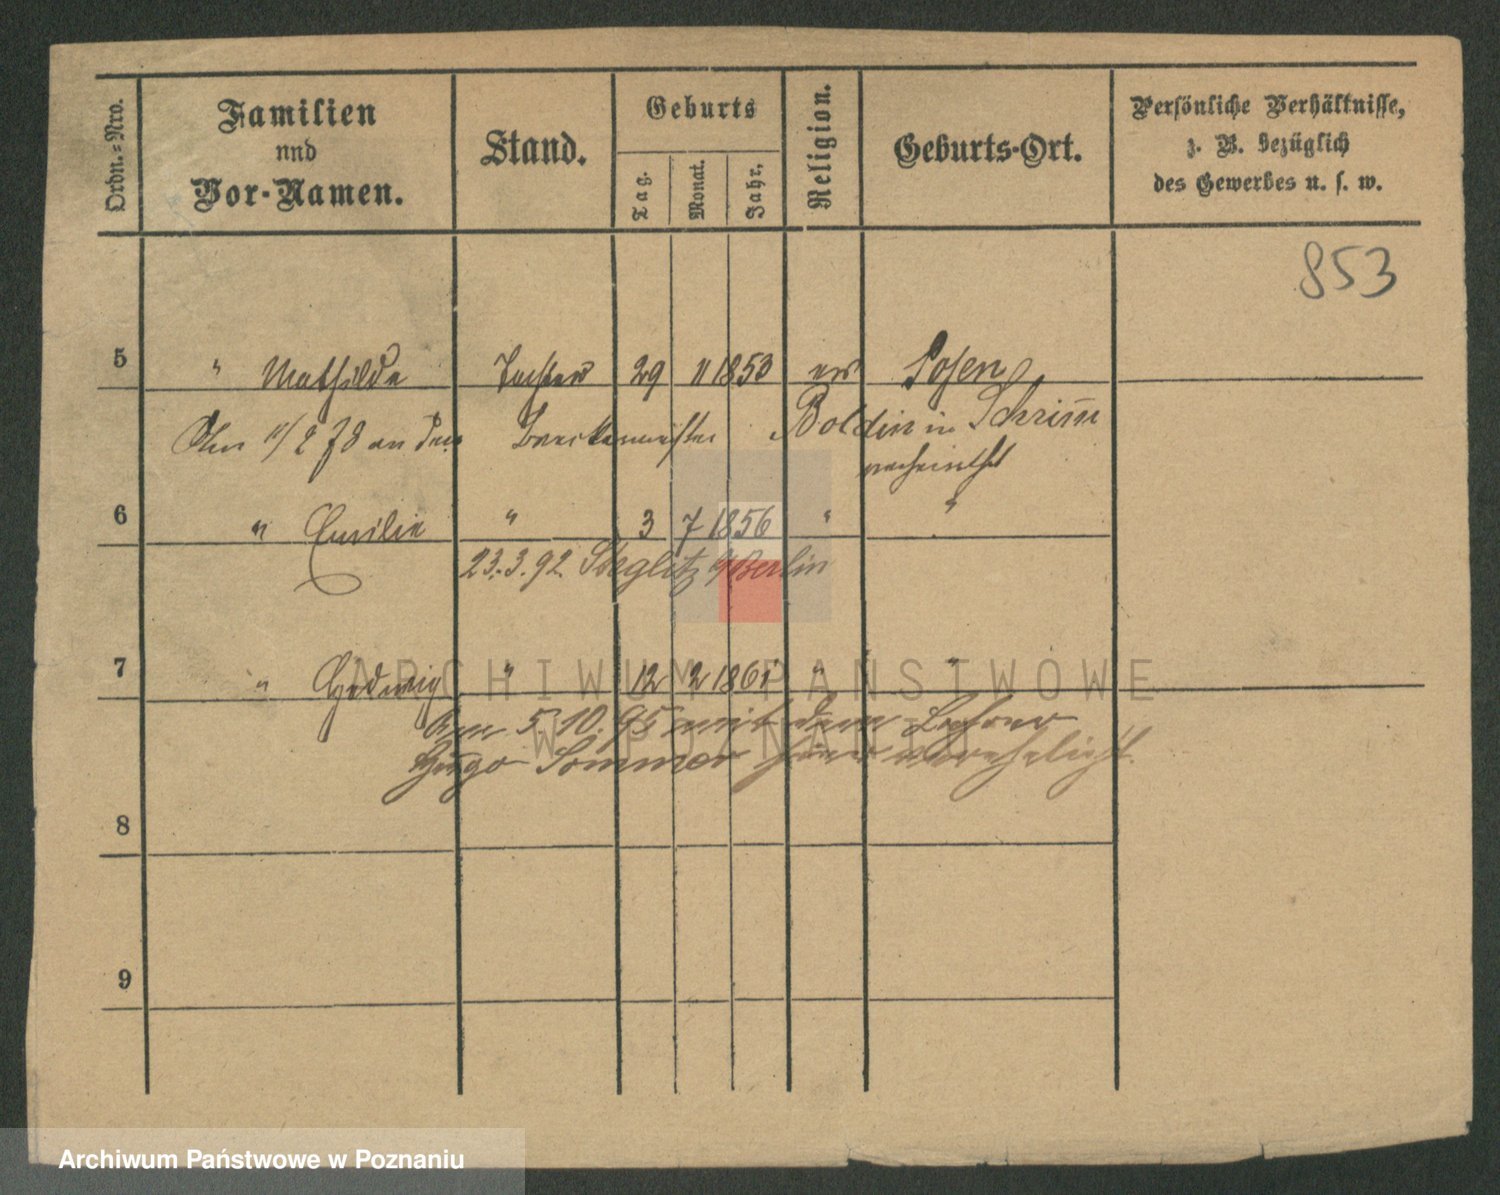 Ordn.=Nro.
Familien
und
Vor-Namen.
Stand.
Geburts
Tag.
Monat.
Jahr.
Religion.
Geburts-Ort.
Persönliche Verhältnisse,
z. B. bezüglich
des Gewerbes u. s. w.
853
5 " Mathilde Tochter 29 11 1853 ev Posen
Am 11/2 78 an den Boldin in Schrimm
verheirathet
6 " Emilie " 3 7 1856 " "
23.3.92 Steglitz b/Berlin
7 " Hedwig " 12 2 1861 " "
Am 5.10.95 mit dem Lehrer
Hugo Sommer hier verehelicht.
8
9
ARCHIWUM PAŃSTWOWE
W POZNANIU
Archiwum Państwowe w Poznaniu